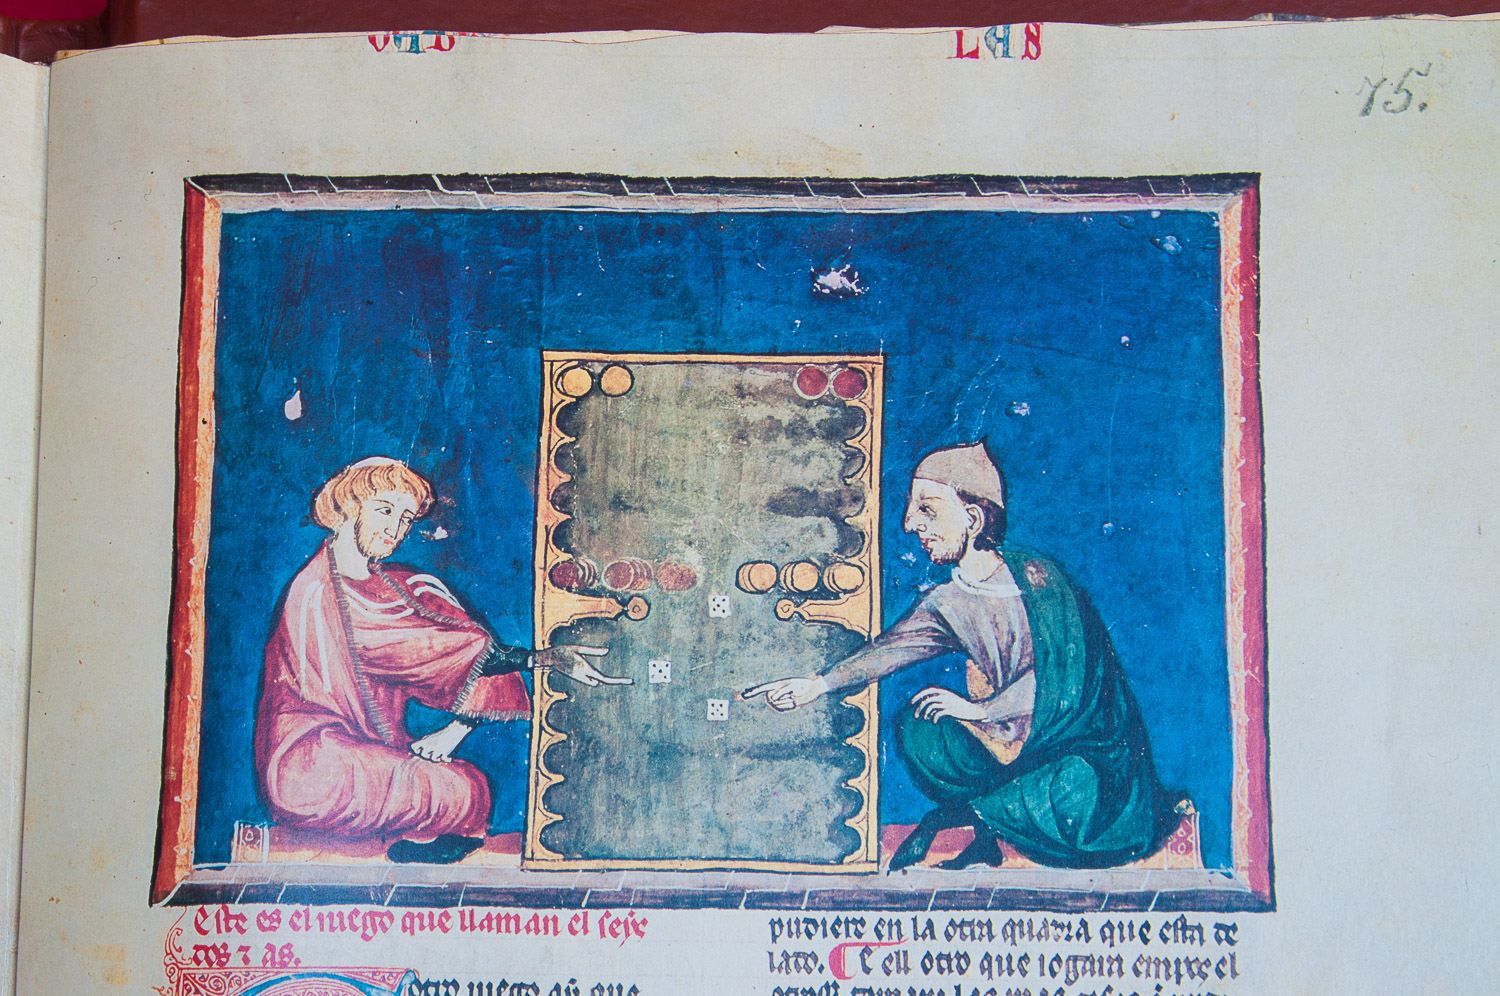 LES
75.
este es el iuego que llaman el seys
dos ⁊ as.
otro iuego ay que
pudiere en la otra quadra que esta de
lado. E ell otro que iogara empos el